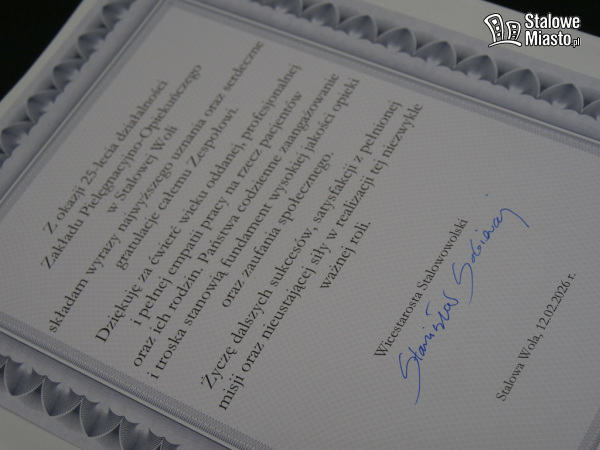 Stalowe
Miasto.pl
Z okazji 25-lecia działalności
Zakładu Pielęgnacyjno-Opiekuńczego
w Stalowej Woli
składam wyrazy najwyższego uznania oraz serdeczne
gratulacje całemu Zespołowi.
Dziękuję za ćwierć wieku oddanej, profesjonalnej
i pełnej empatii pracy na rzecz pacjentów
oraz ich rodzin. Państwa codzienne zaangażowanie
i troska stanowią fundament wysokiej jakości opieki
oraz zaufania społecznego.
Życzę dalszych sukcesów, satysfakcji z pełnionej
misji oraz nieustającej siły w realizacji tej niezwykle
ważnej roli.
Wicestarosta Stalowowolski
Stanisław Sobieraj
Stalowa Wola, 12.02.2026 r.